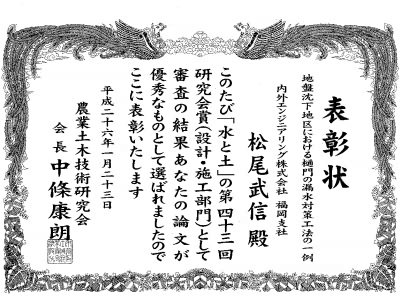 表彰状
地盤沈下地区における樋門の漏水対策工法の一例
内外エンジニアリング株式会社 福岡支社
松尾武信 殿
このたび「水と土」の第四十三回
研究会賞(設計・施工部門)として
審査の結果あなたの論文が
優秀なものとして選ばれましたので
ここに表彰いたします
平成二十六年一月二十三日
農業土木技術研究会
会長 中條康朗